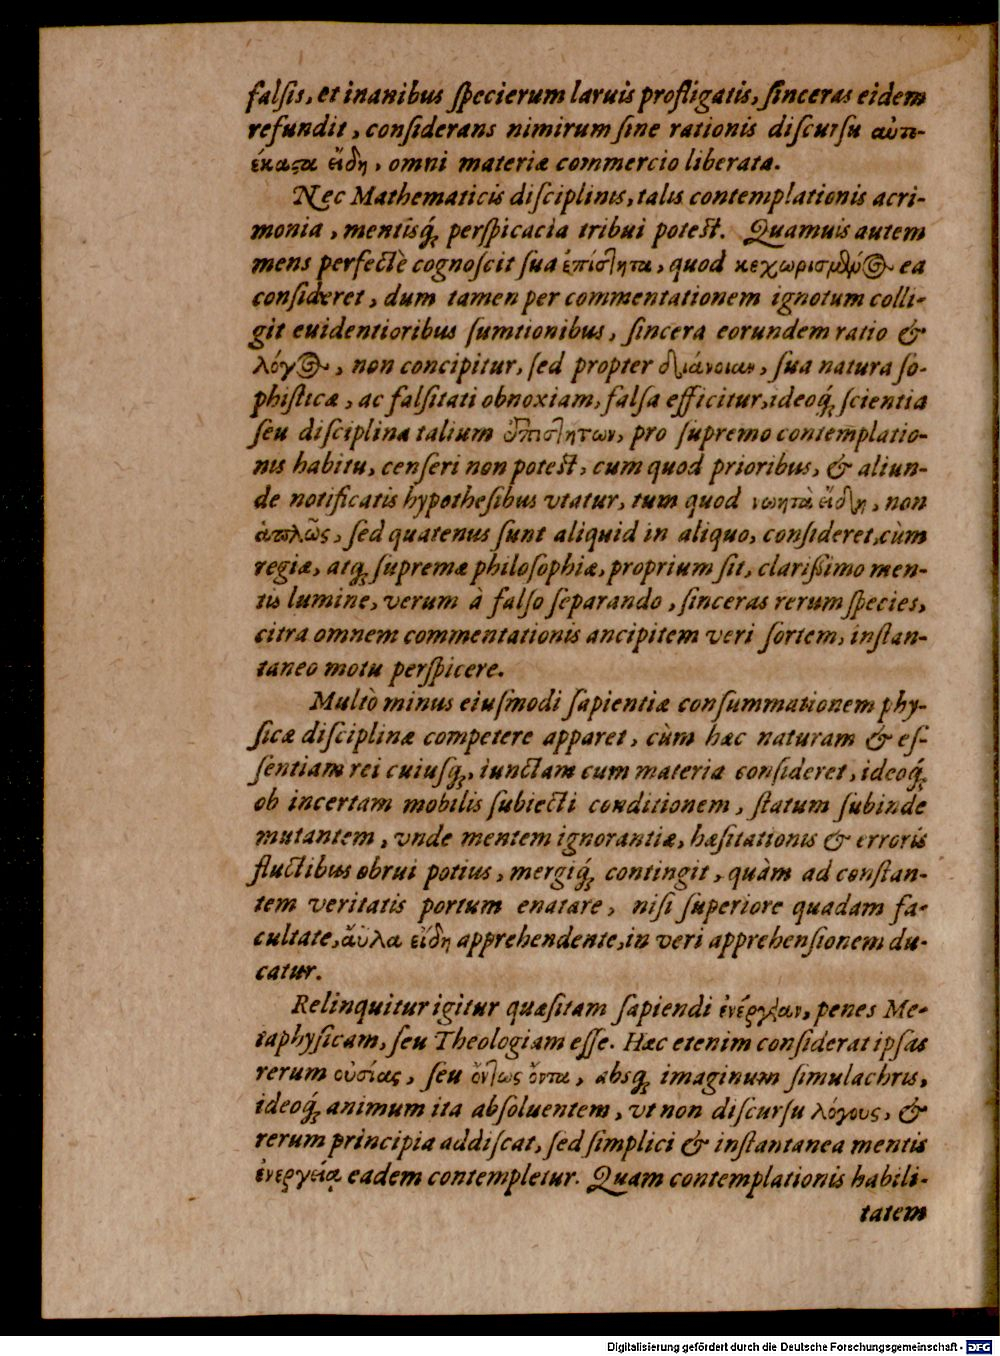 falſis, et inanibus ſpecierum laruis profligatis, ſinceras eidem
refundit, conſiderans nimirum ſine rationis diſcurſu αὐτο-
έκαστα εἴδη, omni materiæ commercio liberata.
Nec Mathematicis diſciplinis, talis contemplationis acri-
monia, mentisq́; perſpicacia tribui poteſt. Quamuis autem
mens perfectè cognoſcit ſua ἐπίστητα, quod κεχωρισμένως ea
conſideret, dum tamen per commentationem ignotum colli-
git euidentioribus ſumtionibus, ſincera eorundem ratio &
λόγος, non concipitur, ſed propter διάνοιαν, ſua natura ſo-
phiſticæ, ac falſitati obnoxiam, falſa efficitur, ideoq́; ſcientia
ſeu diſciplina talium ἐπιστήτων, pro ſupremo contemplatio-
nis habitu, cenſeri non poteſt, cum quod prioribus, & aliun-
de notificatis hypotheſibus vtatur, tum quod νωητὰ εἴδη, non
ἁπλῶς, ſed quatenus ſunt aliquid in aliquo, conſideret, cùm
regiæ, atq; ſupremæ philoſophiæ, proprium ſit, clariſſimo men-
tis lumine, verum à falſo ſeparando, ſinceras rerum ſpecies,
citra omnem commentationis ancipitem veri ſortem, inſtan-
taneo motu perſpicere.
Multò minus eiuſmodi ſapientiæ conſummationem phy-
ſicæ diſciplinæ competere apparet, cùm hæc naturam & eſ-
ſentiam rei cuiuſq́;, iunctam cum materia conſideret, ideoq́;
ob incertam mobilis ſubiecti conditionem, ſtatum ſubinde
mutantem, vnde mentem ignorantiæ, hæſitationis & erroris
fluctibus obrui potius, mergiq́; contingit, quàm ad conſtan-
tem veritatis portum enatare, niſi ſuperiore quadam fa-
cultate, ἄϋλα εἴδη apprehendente, in veri apprehenſionem du-
catur.
Relinquitur igitur quæſitam ſapiendi ἐνέργειαν, penes Me-
taphyſicam, ſeu Theologiam eſſe. Hæc etenim conſiderat ipſas
rerum οὐσίας, ſeu ὄντως ὄντα, absq; imaginum ſimulachris,
ideoq́; animum ita abſoluentem, vt non diſcurſu λόγους, &
rerum principia addiſcat, ſed ſimplici & inſtantanea mentis
ἐνεργείᾳ eadem contempletur. Quam contemplationis habili-
tatem
Digitalisierung gefördert durch die Deutsche Forschungsgemeinschaft - DFG